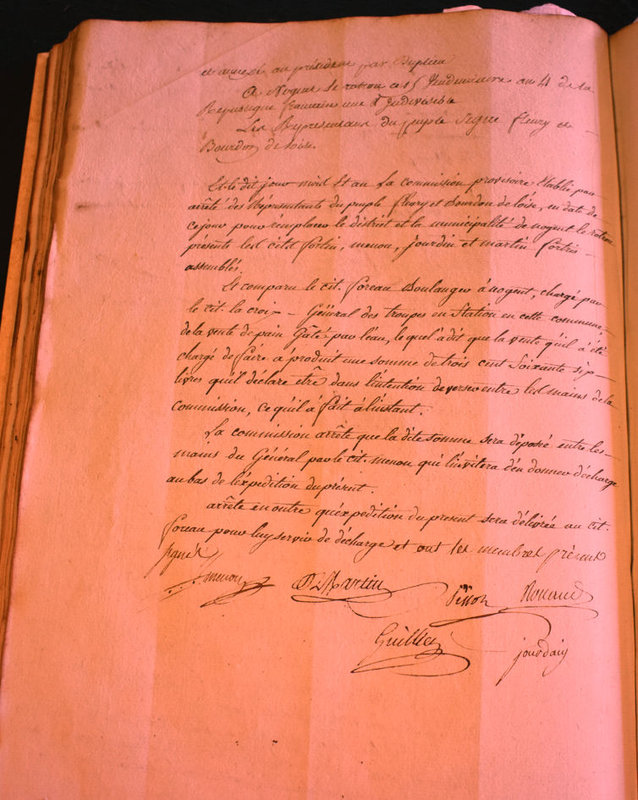 et annexé au président par Duplicu
A Nogent le rotrou ce 15 Vendemiaire an 4 de la
Republique francaise une et Indivisible
Les Représentans du peuple Signé fleury et
Bourdon de loise.
Et le dit jour mois Et an La commission provisoire Etablie par
arrêté des Réprésentants du peuple fleury et Bourdon de loise, en date de
ce jour pour remplacer le district et la municipalité de nogent le rotrou
présents les citns fortin, menou, jourdin et martin fortin
assemblés.
Le comparu le cit. foreau Boulanger à nogent, chargé par
le cit. la croix Général des troupes en Station en cette commune
de la vente de pain Gâté par l'eau, lequel a dit que la vente qu'il a été
chargé de faire a produit une somme de trois cent soixante sept
livres qu'il déclare être dans l'intention de verser entre les mains de la
commission, ce qu'il a fait à l'instant.
La commission arrête que la dite somme sera déposée entre les
mains du Général par le cit. menou qui l'invitera d'en donner décharge
au bas de l'éxpédition du présent.
arrête en outre qu'éxpédition du present sera délivrée au cit.
foreau pour luy servir de décharge et ont les membres présents
signé
menou
Martin
Guillier
jourdain